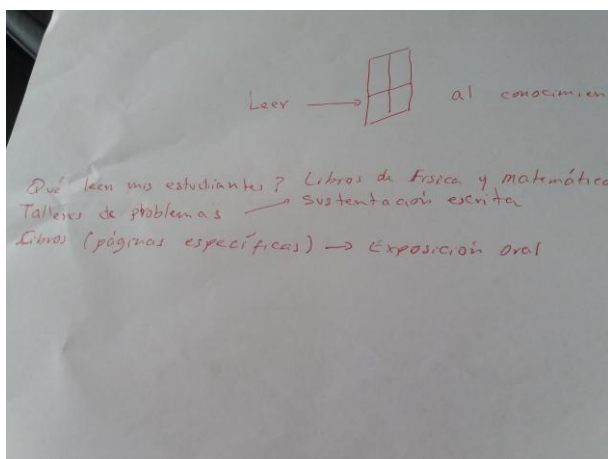 Leer → al conocimien
Qué leen mis estudiantes? Libros de Física y matemática
Talleres de problemas → Sustentación escrita
Libros (páginas específicas) → Exposición oral